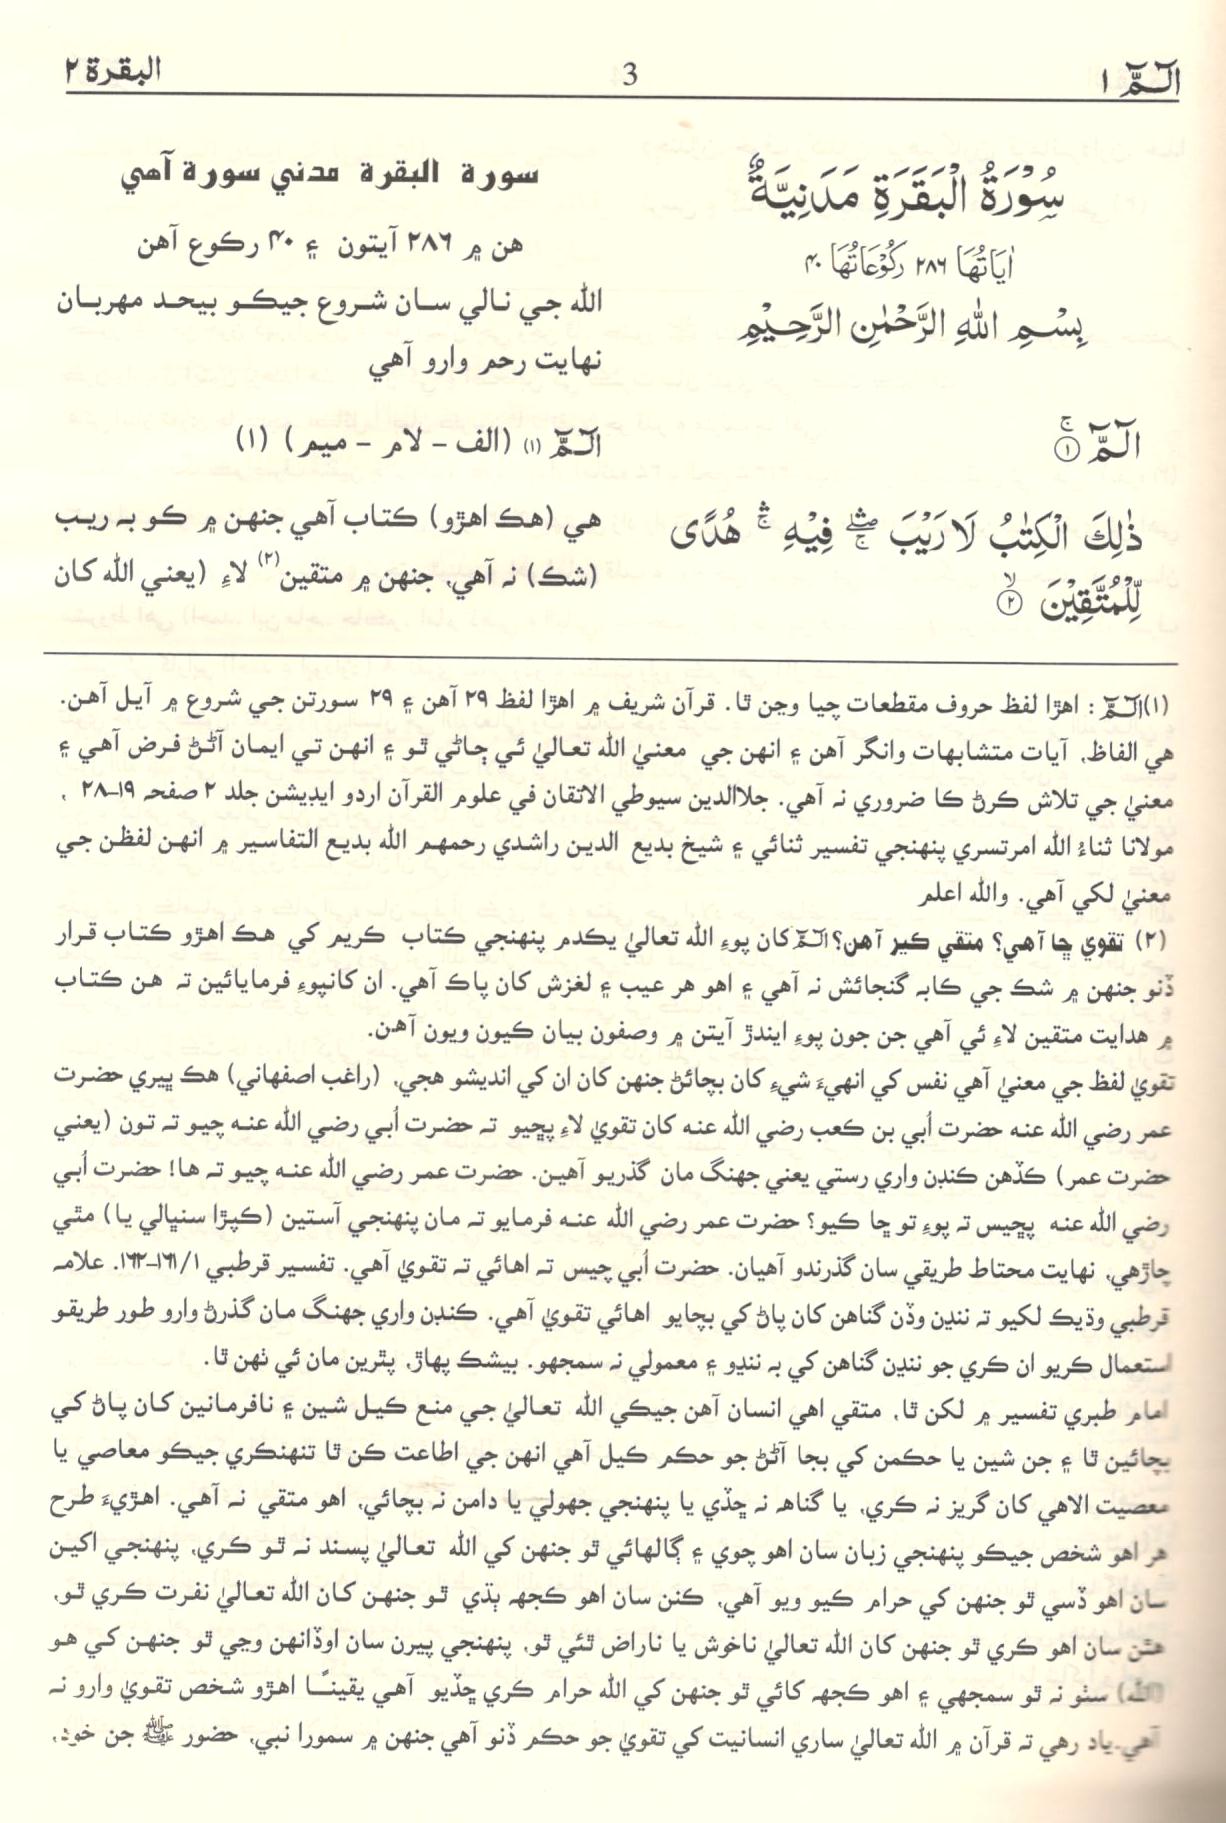 الٓمّٓ ۱
3
البقرة ۲
سُوْرَةُ الْبَقَرَةِ مَدَنِيَّةٌ
اٰيَاتُهَا ۲۸۶ رُكُوْعَاتُهَا ۴۰
بِسْمِ اللهِ الرَّحْمٰنِ الرَّحِيْمِ
الٓمّٓ ۚ ۱
ذٰلِكَ الْكِتٰبُ لَا رَيْبَ ۛ فِيْهِ ۛ هُدًى
لِّلْمُتَّقِيْنَ ۙ ۲
سورة البقرة مدني سورة آهي
هن ۾ ۲۸۶ آيتون ۽ ۴۰ رڪوع آهن
الله جي نالي سان شروع جيڪو بيحد مهربان
نهايت رحم وارو آهي
الٓمّٓ (۱) (الف - لام - ميم) (۱)
هي (هڪ اهڙو) ڪتاب آهي جنهن ۾ ڪو به ريب
(شڪ) نه آهي، جنهن ۾ متقين(۲) لاءِ (يعني الله کان
(۱) الٓمّٓ : اهڙا لفظ حروف مقطعات چيا وڃن ٿا. قرآن شريف ۾ اهڙا لفظ ۲۹ آهن ۽ ۲۹ سورتن جي شروع ۾ آيل آهن.
هي الفاظ، آيات متشابهات وانگر آهن ۽ انهن جي معنيٰ الله تعاليٰ ئي ڄاڻي ٿو ۽ انهن تي ايمان آڻڻ فرض آهي ۽
معنيٰ جي تلاش ڪرڻ ڪا ضروري نه آهي. جلاالدين سيوطي الاتقان في علوم القرآن اردو ايڊيشن جلد ۲ صفحه ۱۹-۲۸ ،
مولانا ثناءُ الله امرتسري پنهنجي تفسير ثنائي ۽ شيخ بديع الدين راشدي رحمهم الله بديع التفاسير ۾ انهن لفظن جي
معنيٰ لکي آهي. والله اعلم
(۲) تقويٰ ڇا آهي؟ متقي ڪير آهن؟ الٓمّٓ کان پوءِ الله تعاليٰ يڪدم پنهنجي ڪتاب ڪريم کي هڪ اهڙو ڪتاب قرار
ڏنو جنهن ۾ شڪ جي ڪابه گنجائش نه آهي ۽ اهو هر عيب ۽ لغزش کان پاڪ آهي. ان کانپوءِ فرمايائين ته هن ڪتاب
۾ هدايت متقين لاءِ ئي آهي جن جون پوءِ ايندڙ آيتن ۾ وصفون بيان ڪيون ويون آهن.
تقويٰ لفظ جي معنيٰ آهي نفس کي انهيءَ شيءِ کان بچائڻ جنهن کان ان کي انديشو هجي، (راغب اصفهاني) هڪ ڀيري حضرت
عمر رضي الله عنه حضرت اُبي بن ڪعب رضي الله عنه کان تقويٰ لاءِ پڇيو ته حضرت اُبي رضي الله عنه چيو ته تون (يعني
حضرت عمر) ڪڏهن ڪنڊن واري رستي يعني جهنگ مان گذريو آهين. حضرت عمر رضي الله عنه چيو ته ها! حضرت اُبي
رضي الله عنه پڇيس ته پوءِ تو ڇا ڪيو؟ حضرت عمر رضي الله عنه فرمايو ته مان پنهنجي آستين (ڪپڙا سنڀالي يا) مٿي
چاڙهي، نهايت محتاط طريقي سان گذرندو آهيان. حضرت اُبي چيس ته اهائي ته تقويٰ آهي. تفسير قرطبي ۱/۱۶۱-۱۶۲. علامه
قرطبي وڌيڪ لکيو ته ننڍن وڏن گناهن کان پاڻ کي بچايو اهائي تقويٰ آهي. ڪنڊن واري جهنگ مان گذرڻ وارو طور طريقو
استعمال ڪريو ان ڪري جو ننڍن گناهن کي به ننڍو ۽ معمولي نه سمجهو. بيشڪ پهاڙ، پٿرين مان ئي ٺهن ٿا.
امام طبري تفسير ۾ لکن ٿا، متقي اهي انسان آهن جيڪي الله تعاليٰ جي منع ڪيل شين ۽ نافرمانين کان پاڻ کي
بچائين ٿا ۽ جن شين يا حڪمن کي بجا آڻڻ جو حڪم ڪيل آهي انهن جي اطاعت ڪن ٿا تنهنڪري جيڪو معاصي يا
معصيت الاهي کان گريز نه ڪري، يا گناهه نه ڇڏي يا پنهنجي جهولي يا دامن نه بچائي، اهو متقي نه آهي. اهڙيءَ طرح
هر اهو شخص جيڪو پنهنجي زبان سان اهو چوي ۽ ڳالهائي ٿو جنهن کي الله تعاليٰ پسند نه ٿو ڪري، پنهنجي اکين
سان اهو ڏسي ٿو جنهن کي حرام ڪيو ويو آهي، ڪنن سان اهو ڪجهه ٻڌي ٿو جنهن کان الله تعاليٰ نفرت ڪري ٿو،
هٿن سان اهو ڪري ٿو جنهن کان الله تعاليٰ ناخوش يا ناراض ٿئي ٿو، پنهنجي پيرن سان اوڏانهن وڃي ٿو جنهن کي هو
(الله) سٺو نه ٿو سمجهي ۽ اهو ڪجهه کائي ٿو جنهن کي الله حرام ڪري ڇڏيو آهي يقيناً اهڙو شخص تقويٰ وارو نه
آهي. ياد رهي ته قرآن ۾ الله تعاليٰ ساري انسانيت کي تقويٰ جو حڪم ڏنو آهي جنهن ۾ سمورا نبي، حضور ﷺ جن خود،